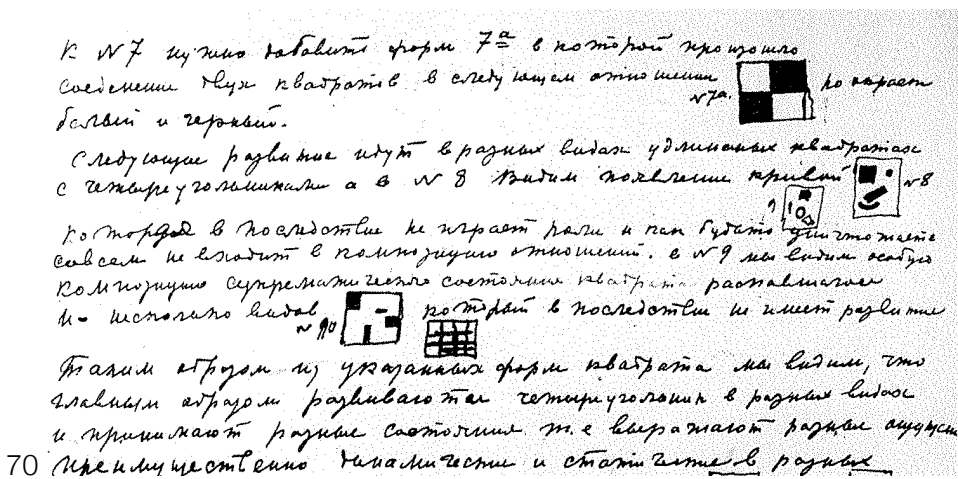 К №7 нужно добавить форм 7ª в которой произошло
соеденение двух квадратов в следующем отношении №7а. по окраске
белый и черный.
Следующие развитие идут в разных видах удлиненных квадратах
с четыреугольниками а в №8 видим появление кривой №8
которая в последствие не играет роли и как будьто уничтожается
совсем не входит в композицию отношений. в №9 мы видим особую
композицию супрематическаго состояние квадрата распавшагося
на несколько видов №10 который в последствие не имеет развитие
Таким образом из указанных форм квадрата мы видим, что
главным образом развиваются четыреугольник в разных видах
и принимают разные состояния т.е выражают разные ощущен
70 преимущественно динамические и статические в разных